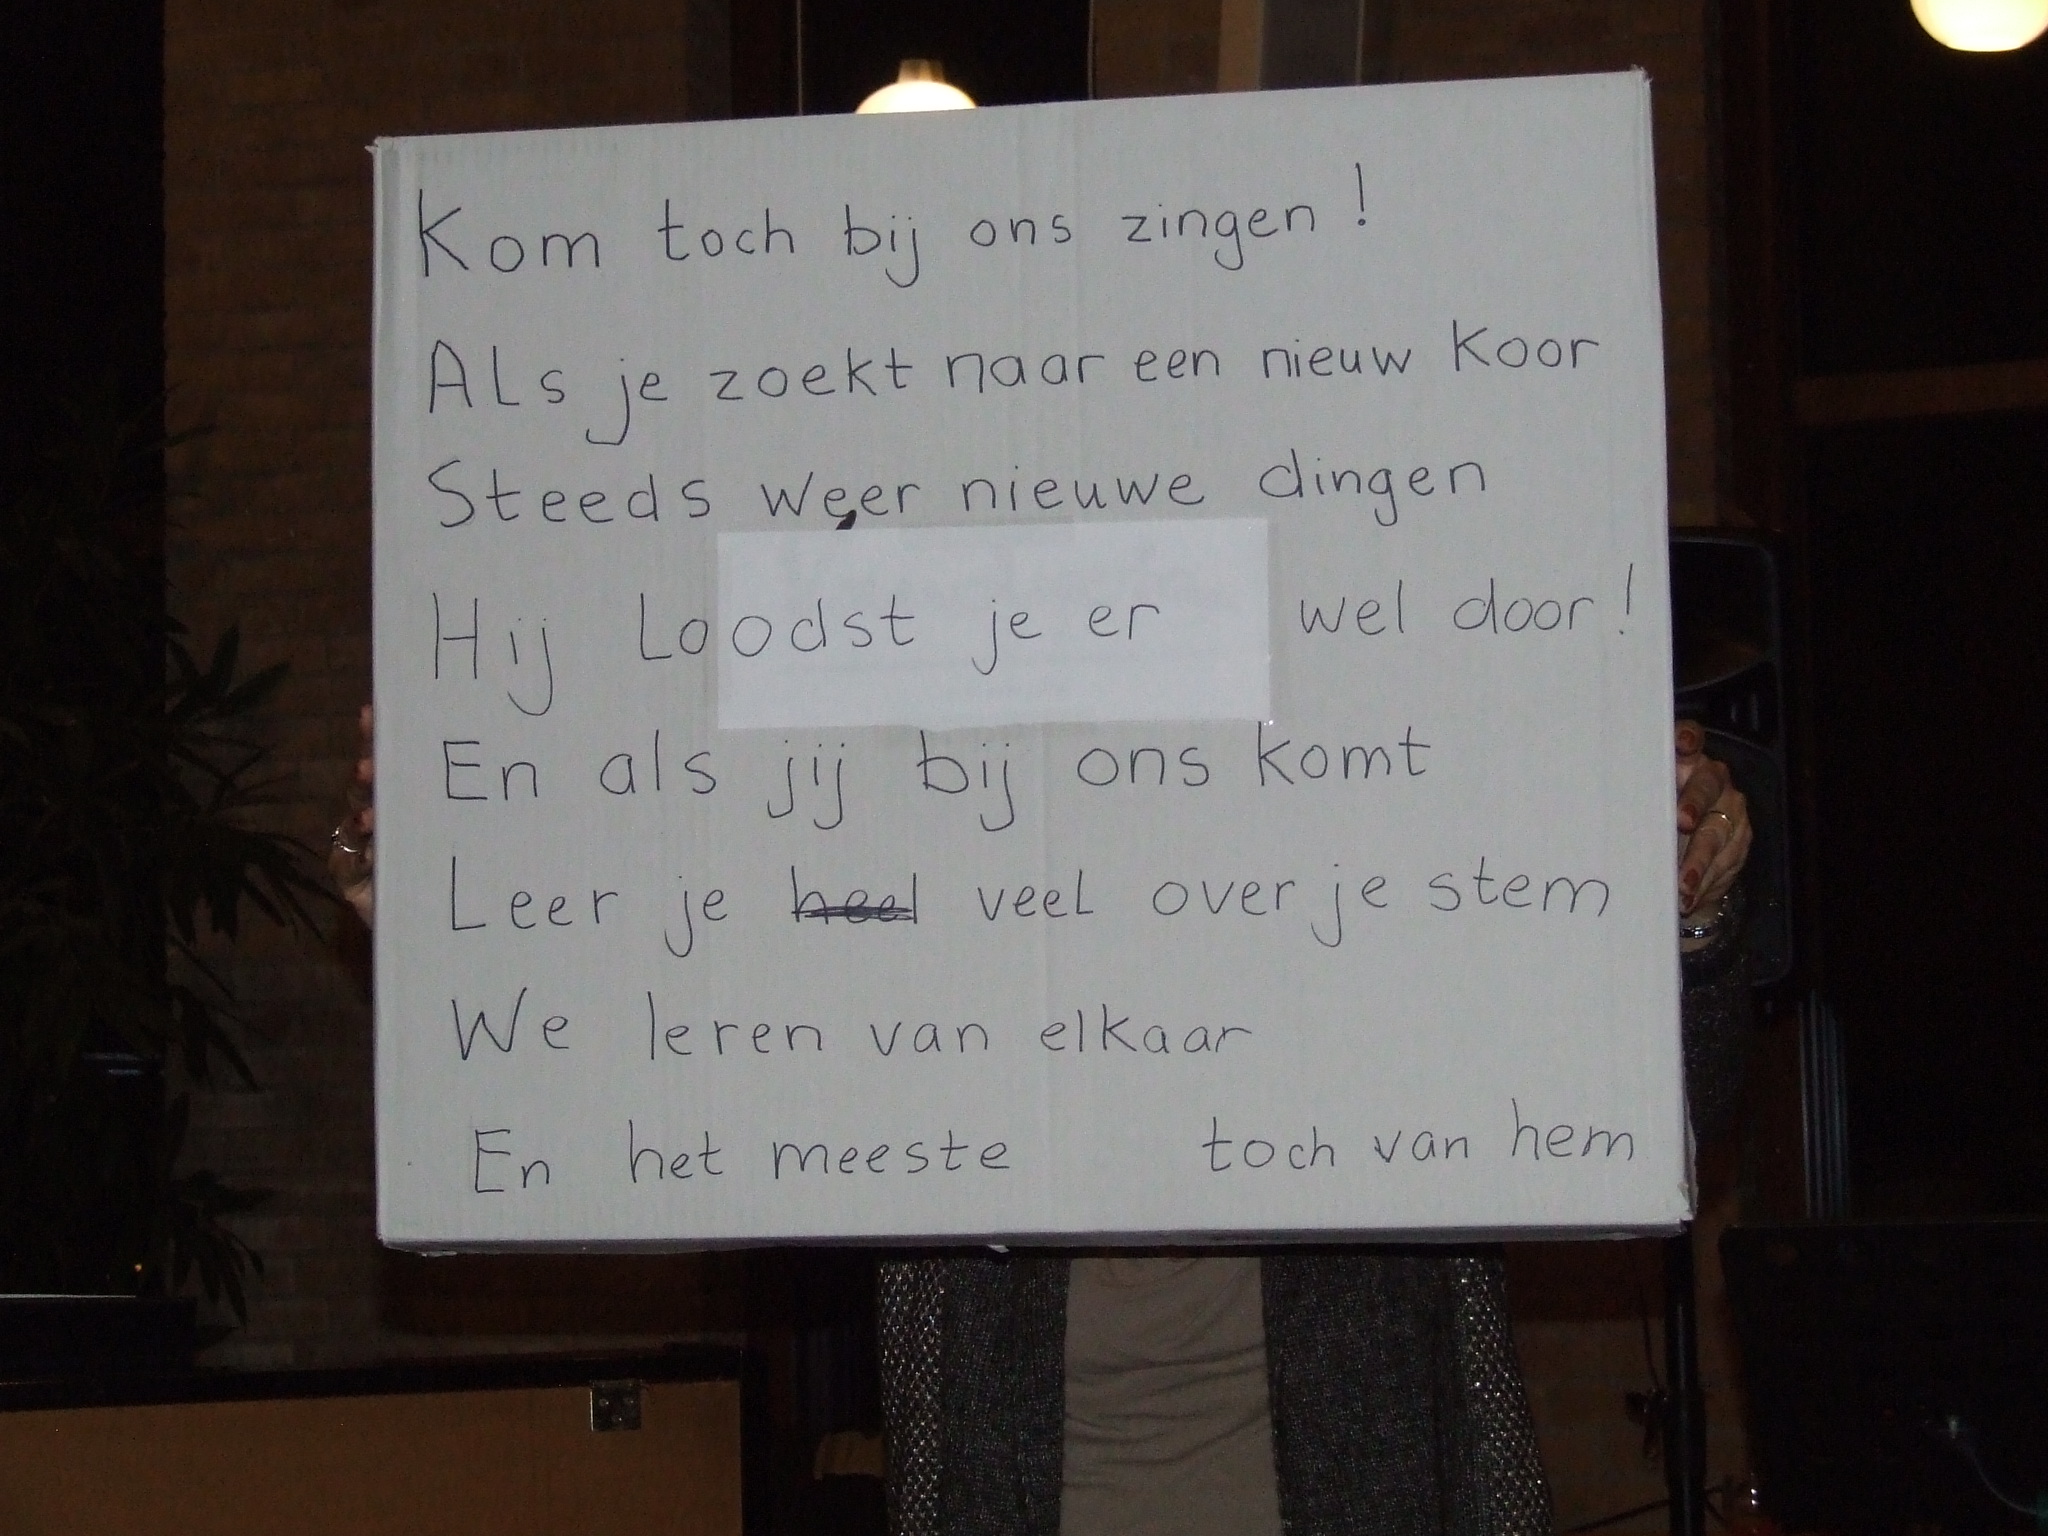 Kom toch bij ons zingen !
Als je zoekt naar een nieuw koor
Steeds weer nieuwe dingen
Hij Loodst je er wel door !
En als jij bij ons komt
Leer je heel veel over je stem
We leren van elkaar
En het meeste toch van hem